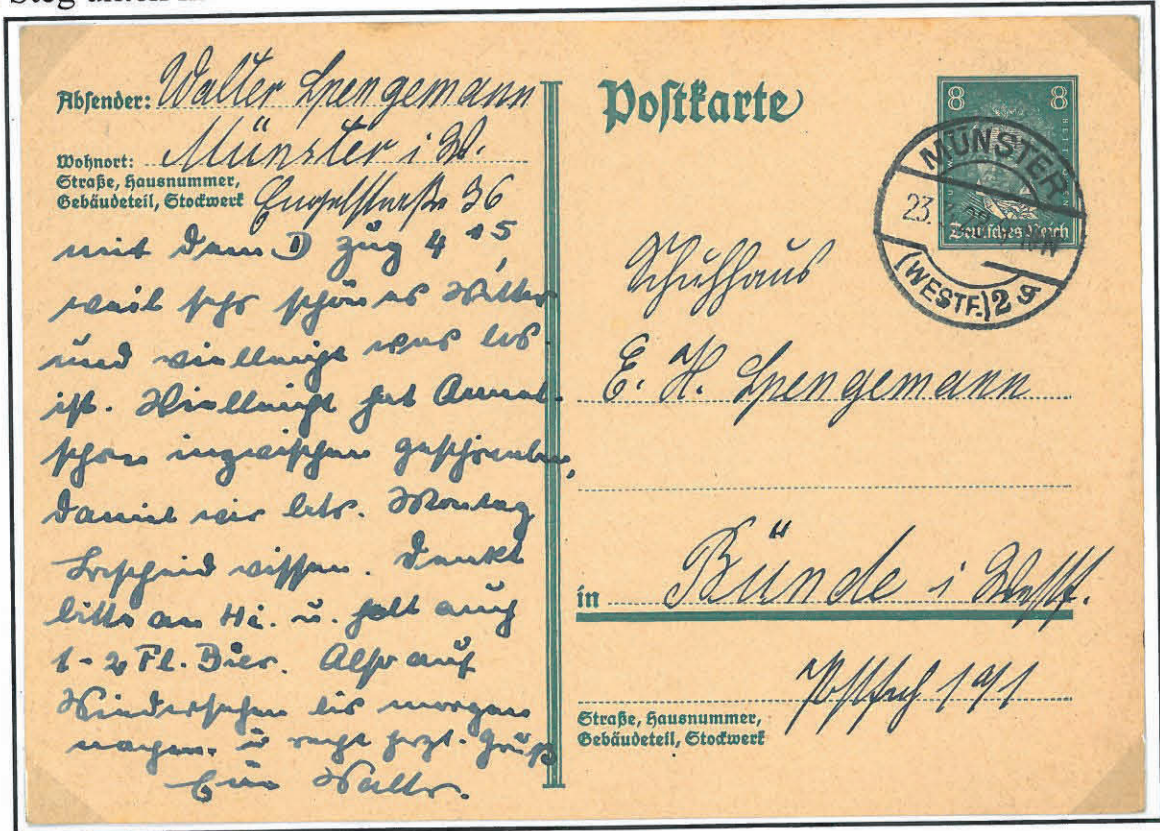 Absender: Walter Spengemann
Wohnort: Münster i W.
Straße, Hausnummer,
Gebäudeteil, Stockwerk Engelstraße 36
mit dem D Zug 4 15,
weil sehr schönes Wetter
und vielleicht was los
ist. Vielleicht hat
schon inzwischen geschrieben,
damit wir bets. Montag
Bescheid wissen. Denkt
bitte an Hi. u. holt auch
1-2 Fl. Bier. Also auf
Wiedersehen bis morgen
nachm. u recht herzl. Gruß
Euer Walter.
Postkarte
8 8
Deutsches Reich
MÜNSTER
23.
(WESTF.) 2
Schuhhaus
E. H. Spengemann
in Bünde i Westf.
Postfach 191
Straße, Hausnummer,
Gebäudeteil, Stockwerk